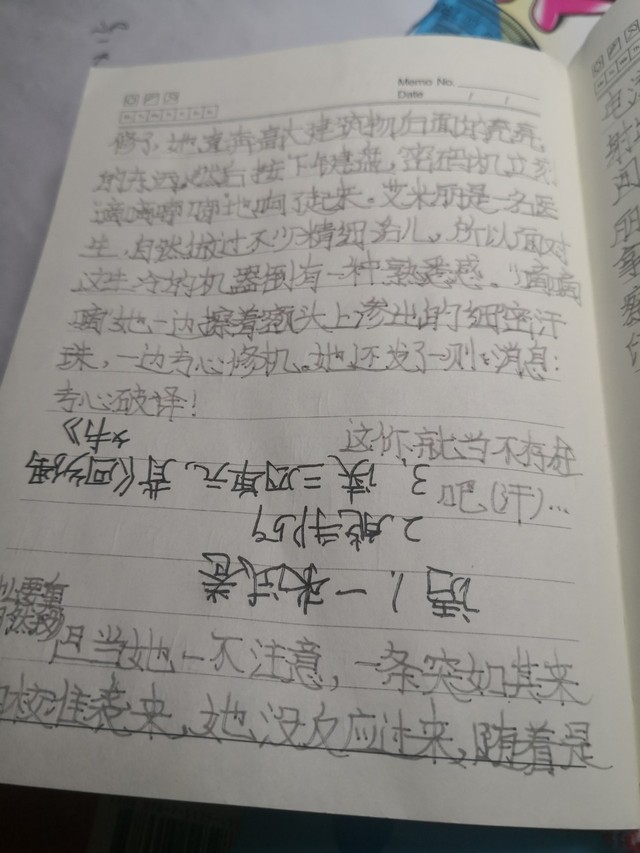 Memo No.
Date / /
修了,她直奔高大建筑物后面的亮亮
的东西。然后按下键盘,密码机立刻
滴滴嘟嘟地响了起来。艾米丽是一名医
生,自然做过不少精细活儿。所以面对
这生冷的机器倒有一种熟悉感。
她一边擦着额头上渗出的细密汗
珠,一边专心修机。她还发了一则消息:
专心破译!
这你就当不存在
吧(汗)…
语 1.一张试卷
2.能手P59
3.读三四单元,背《回乡偶
书》
且当她一不注意,一条突如其来
校准袭来,她没反应过来,随着是